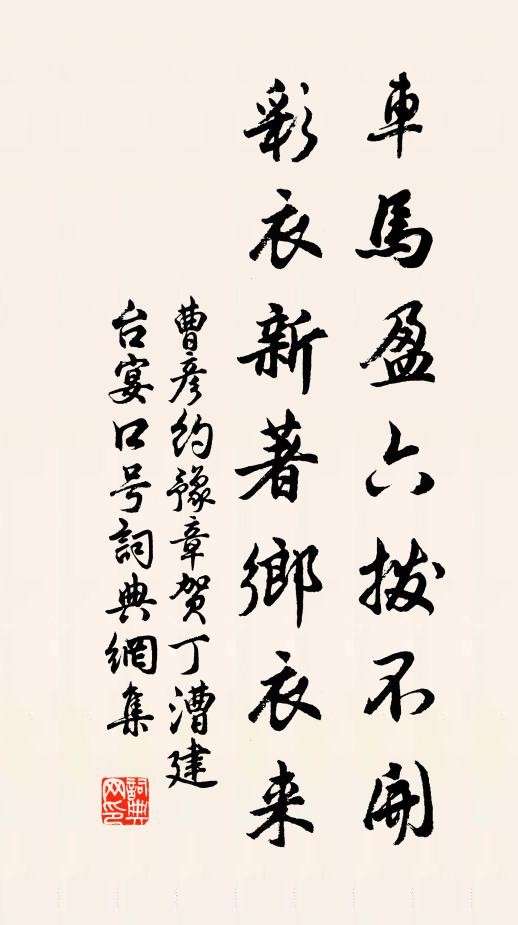 車馬盈六拨不開
彩衣新著鄉衣来
曹彦约豫章賀丁漕建
台宴口号詞典網集
詞典网印